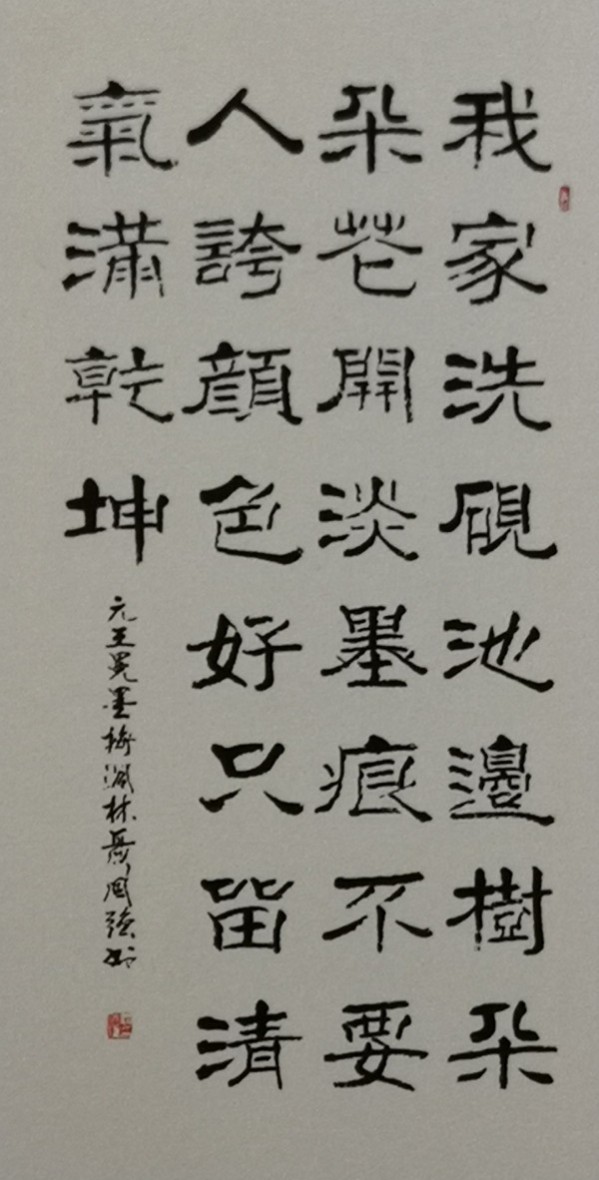 我家洗硯池邊樹朵
朵花開淡墨痕不要
人誇顏色好只留清
氣滿乾坤
元王冕墨梅